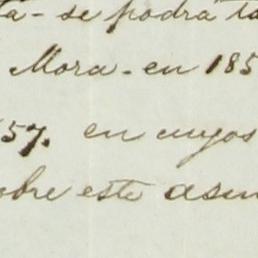 ta - se podrá ta
Mora - en 185
57. en cuyos
obre este asun